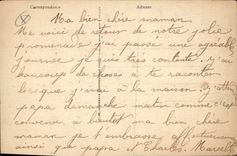 Correspondance Adresse
Ma bien chère maman
Me voici de retour de notre jolie
promenade j'ai passé une agréable
journée je suis très contente, j'ai
beaucoup de choses à te raconter
lorsque j'irai à la maison
papa dimanche matin comme c'est
convenu, à bientôt ma bien chère
maman je t'embrasse affectueusement
ainsi que papa et Charles. Marcelle